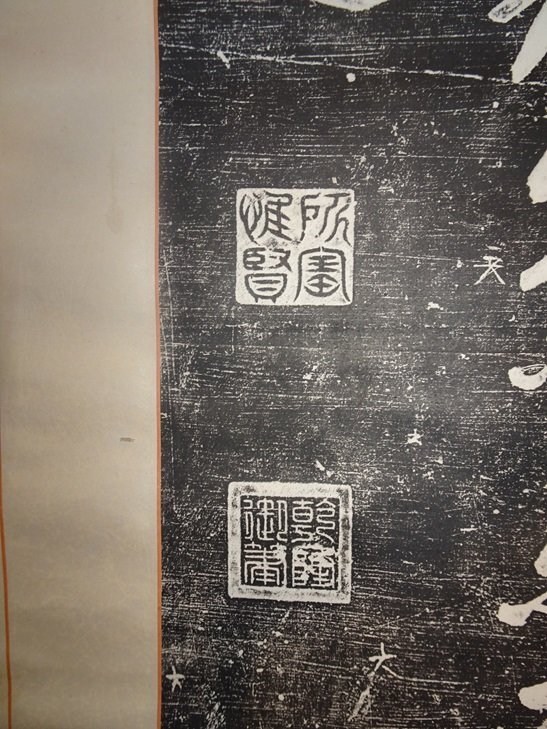 所寶惟賢
乾隆御筆
天
大
大